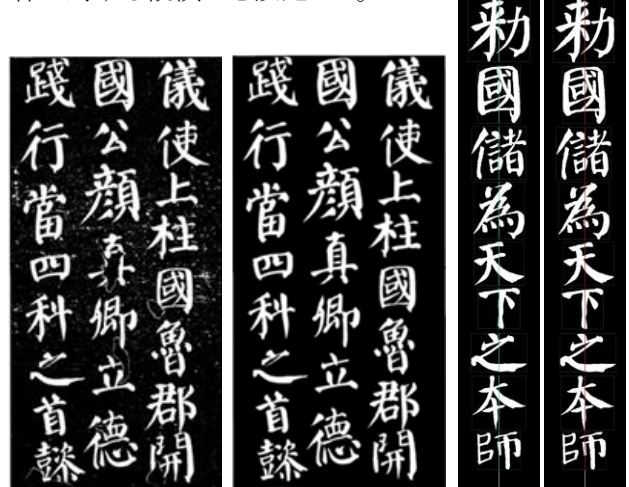 儀使上柱國魯郡開
國公顏真卿立德
踐行當四科之首懿
儀使上柱國魯郡開
國公顏真卿立德
踐行當四科之首懿
勅國儲為天下之本師
勅國儲為天下之本師